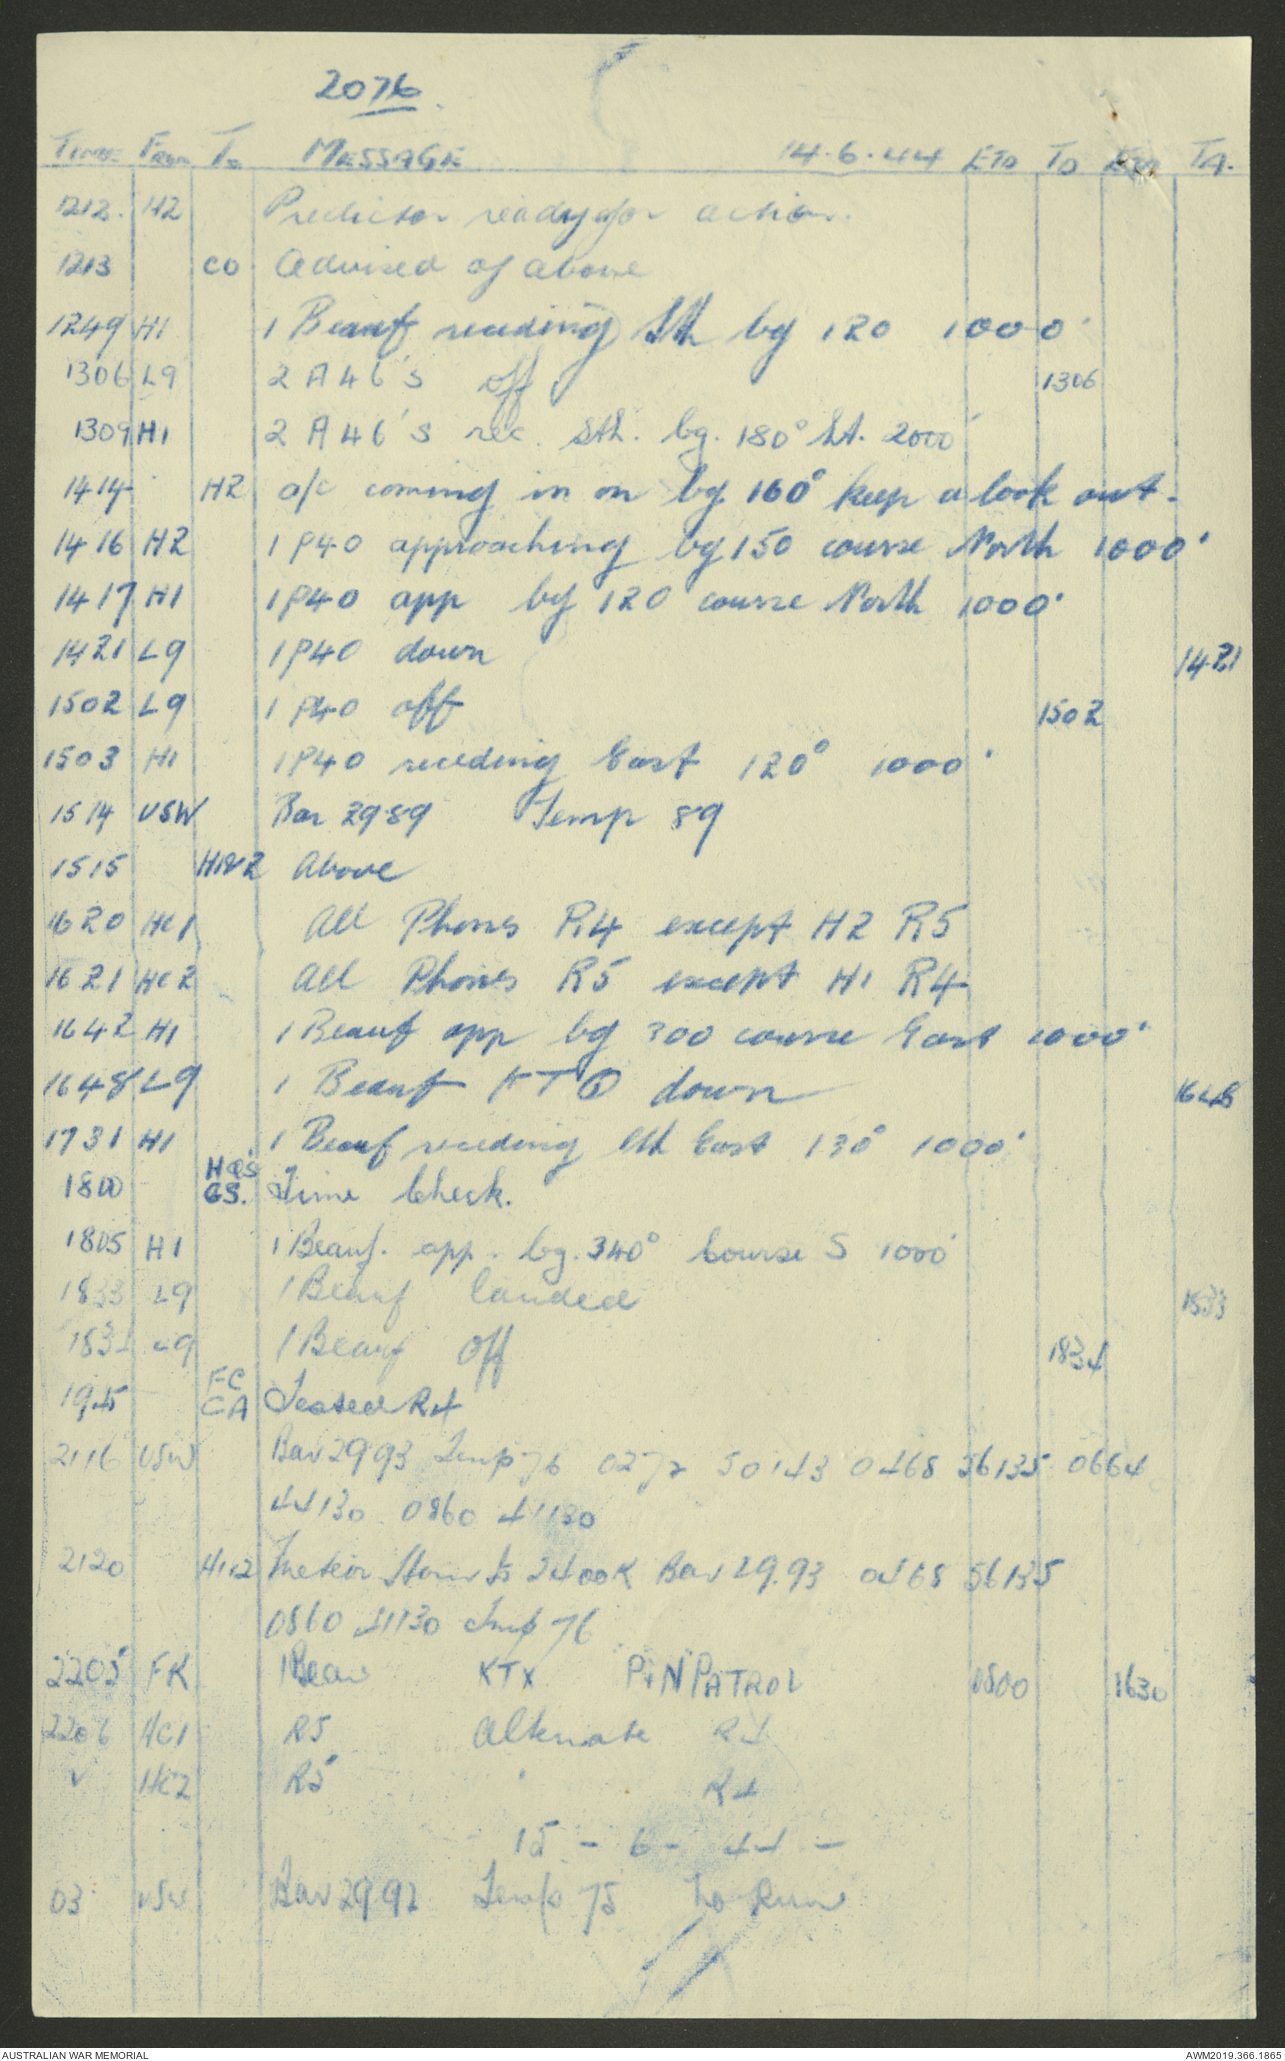 2076
TIME FROM TO MESSAGE 14.6.44 ETD TD ETA TA.
1212. H2 Predictor ready for action.
1213 CO Advised of above
1249 H1 1 Beauf receding Sth bg 120 1000'
1306 L9 2 A46's off 1306
1309 H1 2 A46's rec. Sth. bg. 180° ht. 2000'
1414 H2 a/c coming in on bg 160° keep a look out.
1416 H2 1 P40 approaching bg 150 course North 1000'
1417 H1 1 P40 app bg 120 course North 1000'
1421 L9 1 P40 down 1421
1502 L9 1 P40 off 1502
1503 H1 1 P40 receding East 120° 1000'
1514 VSW Bar 2989 Temp 89
1515 H1&2 Above
1620 HC1 All Phones R4 except H2 R5
1621 HC2 All Phones R5 except H1 R4
1642 H1 1 Beauf app bg 300 course East 1000'
1648 L9 1 Beauf KT down 1648
1731 H1 1 Beauf receding Sth East 130° 1000'
1800 HQ'S GS. Time Check.
1805 H1 1 Beauf. app. bg. 340° Course S 1000'
1833 L9 1 Beauf landed 1833
1834 L9 1 Beauf Off 1834
1945 FC CA Tested R4
2116 VSW Bar 2993 Temp 76 0272 50143 0468 56135 0664
44130 0860 41130
2120 H1&2 Meteor 2400K Bar 29.93 0468 56135
0860 41130 Temp 76
2205 FK 1 Beau KTX P+N PATROL 0500 1630
2206 HC1 R5 Alternate R4
" HC2 R5 " R4
15 - 6 - 44 -
03 VSW Bar 2992 Temp 75 No Run
AUSTRALIAN WAR MEMORIAL AWM2019.366.1865